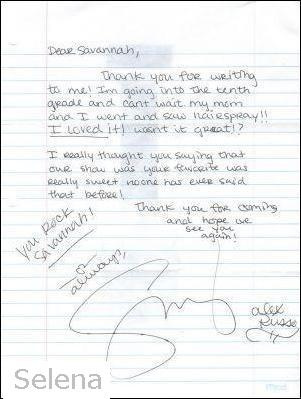 Dear Savannah,
Thank you for writing
to me! I'm going into the tenth
grade and cant wait my mom
and I went and saw hairspray!!
I loved it! wasnt it great!?
I really thought you saying that
our show was your favorite was
really sweet noone has ever said
that before!
Thank you for coming
and hope we
see you
again!
You Rock
Savannah!
always,
alex
Russo
Selena